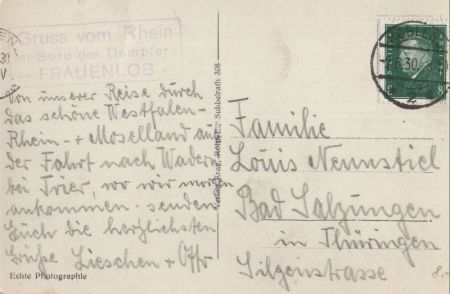 Gruss vom Rhein
an Bord des Dampfer
FRAUENLOB
Von unserer Reise durch
das schöne Westfalen-
Rhein- + Moselland auf
der Fahrt nach Wadern
bei Trier, wo wir morgen
ankommen. senden
Euch die herzlichsten
Grüße Lieschen + Otto
Echte Photographie
Familie
Louis Nennstiel
Bad Salzungen
in Thüringen
Silgenstrasse
8
8.-